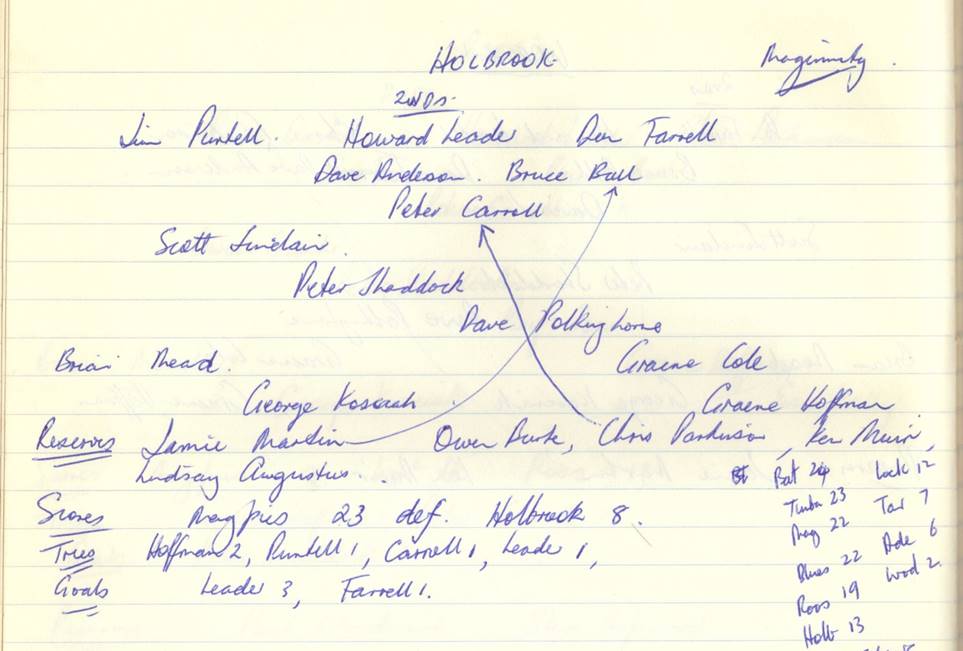 HOLBROOK. Maginnity.
2NDS.
Jim Purtell. Howard Leader Den Farrell
Dave Anderson. Bruce Ball
Peter Carroll
Scott Sinclair.
Peter Shaddock
Dave Polkinghorne
Brian Mead. Graeme Cole
George Graeme Hoffman
Reserves Jamie Martin Owen Burke, Chris Parkinson, Ken Muir,
Lindsay Augustus.
Bat 24 Lock 12
Scores Magpies 23 def. Holbrook 8.
Tumba 23 Tar 7
Tries Hoffman 2, Purtell 1, Carroll 1, Leader 1,
Mag 22 Ade 6
Goals Leader 3, Farrell 1.
Blues 22 Wod 2.
Roos 19
Holb 13